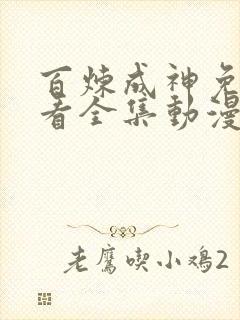 百炼成神免
看全集動漫
老鷹喫小鸡2